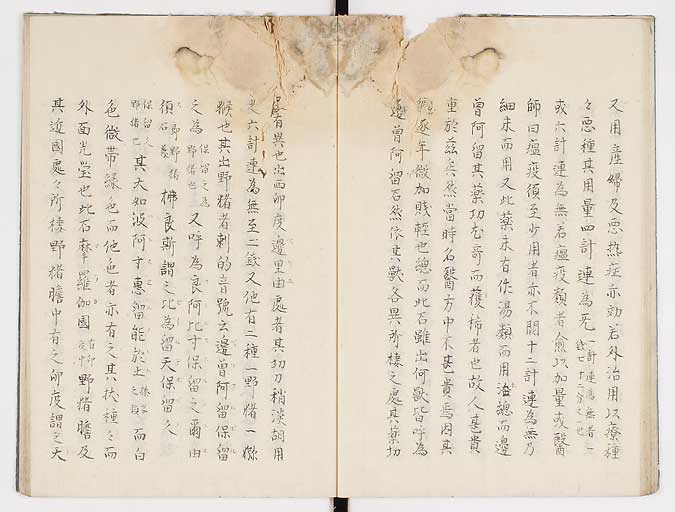 又用産婦及悪熱症亦効若外治用以療種
々悪種其用量四計連為死一計連為無者一銭七十二分之一也
或六計連為無若瘟疫類者愈以加量或醫
師曰瘟疫須至少用者亦不開十二計連為無乃
細末而用又此藥末有佚湯類而用溢總而邊
曽阿留其藥功尤奇而獲稀者也故人甚貴
重於茲矣然當時石醫方中不甚貴焉因其
逐年微加賤輕也總而此石雖出何獣皆呼為
邊曽阿留石然依其獣各異所棲之處其藥功
皆異也出西印度邊里由處者其切刀稍淡胡用
六計連為無至二錢又他有二種一野猪一猴
猴也其出野猪者剌的音號云邊曽阿留保留
之為保留之為野猪也又呼為良阿比寸保留之爾由
須即野猪石義棉良斯謂之比為留天保留久
保留久野猪也其大如波阿寸惠留能於土榛實之類而白
色微帯緑色而他色者亦有之其扶種々而
外面光瑩也此石摩羅伽國有印度中野猪膽及
其近國處々所棲野猪膽中有之印度謂之大